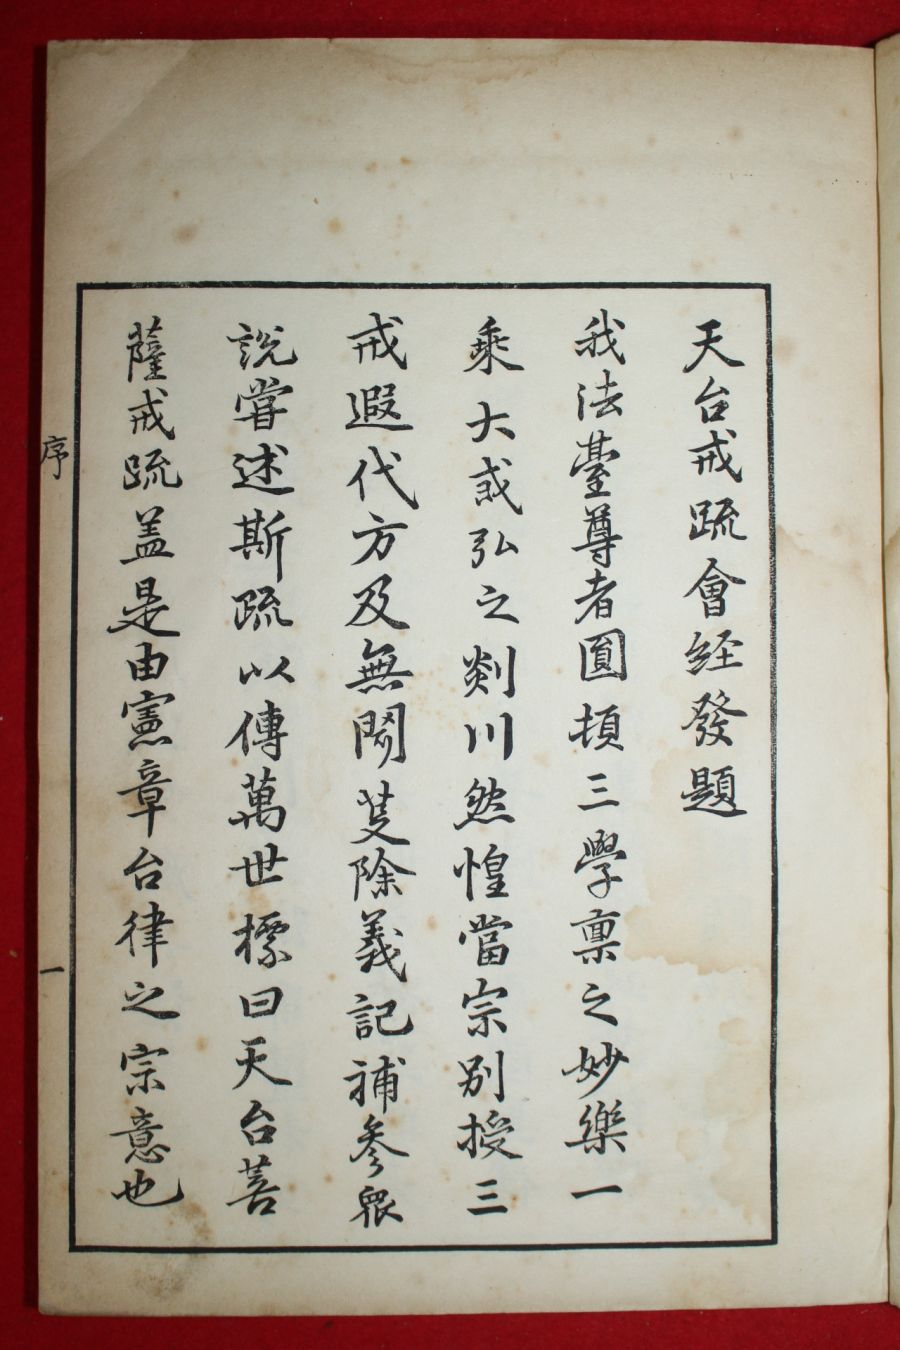 天台戒疏會経發題
我法臺尊者圓頓三學稟之妙樂一
乘大戒弘之剡川然惶當宗別授三
戒遐代方及無聞芟除義記補參衆
說嘗述斯疏以傳萬世標曰天台菩
薩戒疏盖是由憲章台律之宗意也
序
一